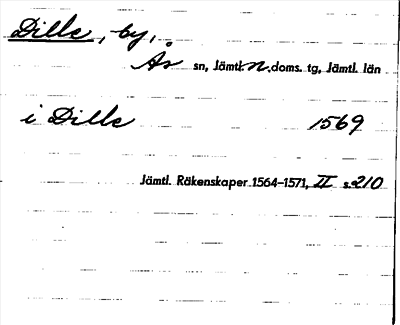 Dille, by,
Ås sn, Jämtl. n. doms. tg, Jämtl. län
i Dille 1569
Jämtl. Räkenskaper 1564–1571, II s. 210